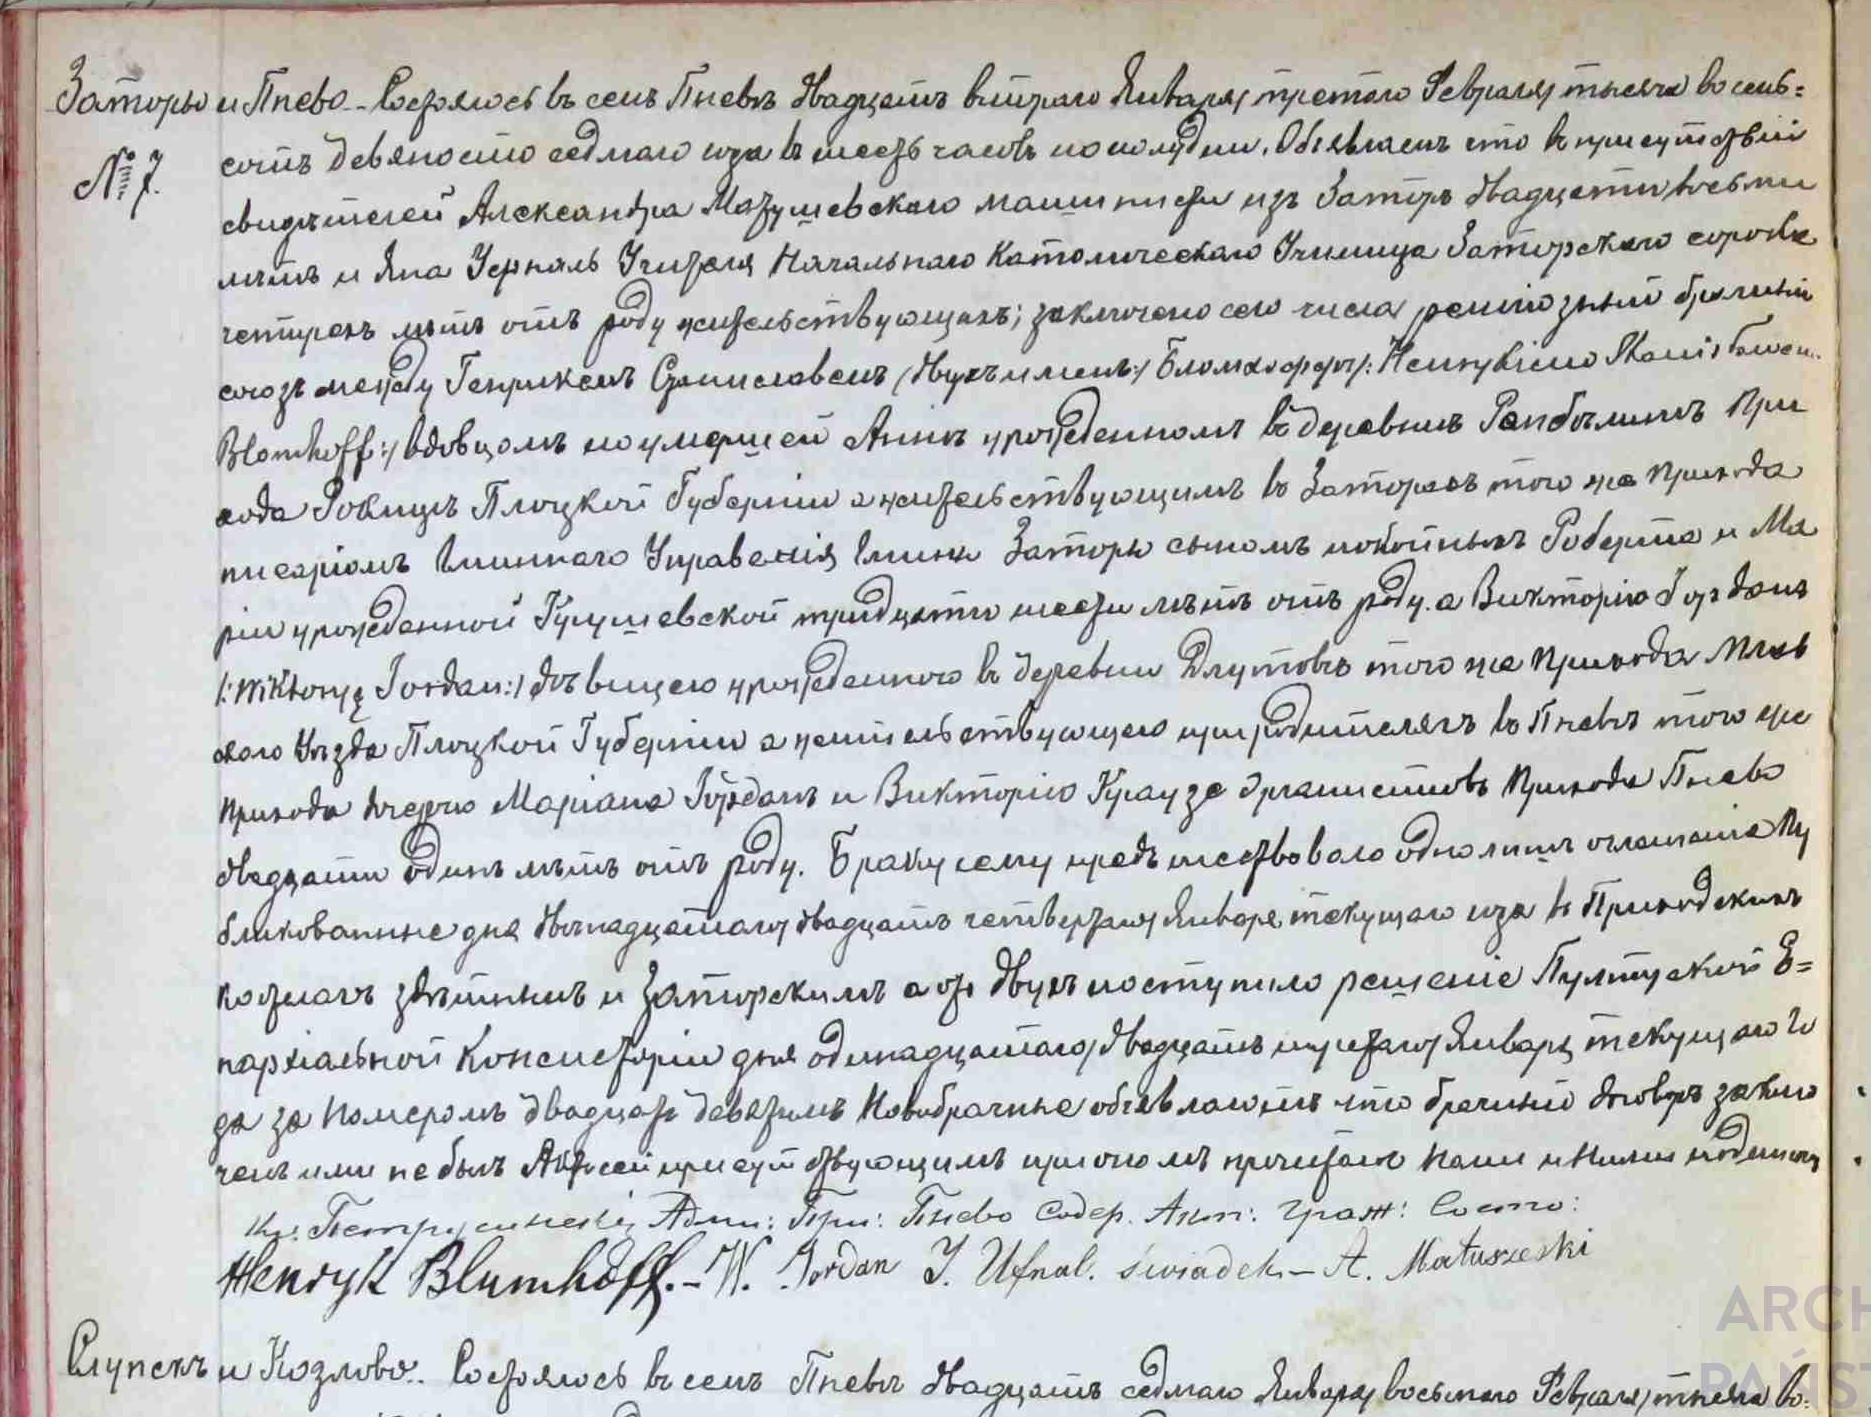 Заторы и Пнево. Состоялось въ селѣ Пневѣ двадцать втораго Января/третяго Февраля/тысяча восемь=
№ 7. сотъ девяносто седмаго года в шесть часовъ пополудни. Объявляемъ что в присутствіи
свидѣтелей Александра Матушевскаго машинисты изъ Заторъ двадцати восьми
лѣтъ и Яна Уфналь Учителя Начальнаго Католическаго Училища Заторскаго сорока
четырехъ лѣтъ отъ роду жительствующихъ; заключено сего числа религіозный брачный
союзъ между Генрикемъ Станиславемъ /двухъ именъ:/ Бломхоффъ/: Henrykiem Stanisławem
Blomhoff:/ вдовцомъ по умершей Аннѣ урожденномъ въ деревнѣ При
хода Плоцкой Губерніи а жительствующимъ въ Заторахъ того же Прихода
писаріомъ Гминнаго Управленія Гмины Заторы сыномъ покойныхъ Роберта и Ма
ріи урожденной тридцати шести лѣтъ отъ роду. а Викторію Іорданъ
/: Wiktoryę Jordan:/ дѣвицею урожденною в деревни Длутовѣ того же Прихода Млав
скаго Уѣзда Плоцкой Губерніи а жительствующею при родителяхъ въ Пневѣ того же
Прихода дочерю Маріана Іорданъ и Викторію Краузе органистовъ Прихода Пнево
двадцати одинъ лѣтъ отъ роду. Браку сему предшествовало одно лишъ оглашеніе Пу
бликованные дня двѣнадцатаго/двадцать четвертаго/Января текущаго года в Приходскихъ
костелахъ здѣшнымъ и Заторскимъ а от двухъ поступило решеніе Пултуской Е=
пархіальной Консисторіи дня одинадцатаго/двадцать третяго/Января текущаго Го
да за Номеромъ двадцать девятымъ Новобрачные объявляютъ что брачный договоръ заклю
ченъ ими не былъ Актъ сей присутствующимъ при ономъ прочитанъ Нами и Ними подписанъ
Кс. Адми: При: Пнево Содер. Акт: Граж: Состо:
Henryk Blumhoff. – W. Jordan J. Ufnal. świadek – A. Matuszeski
Слупскъ и Козлово.. Состоялось в селѣ Пневѣ двадцать седмаго Января/восьмаго Февраля/тысяча во=
ARCH
PAŃST